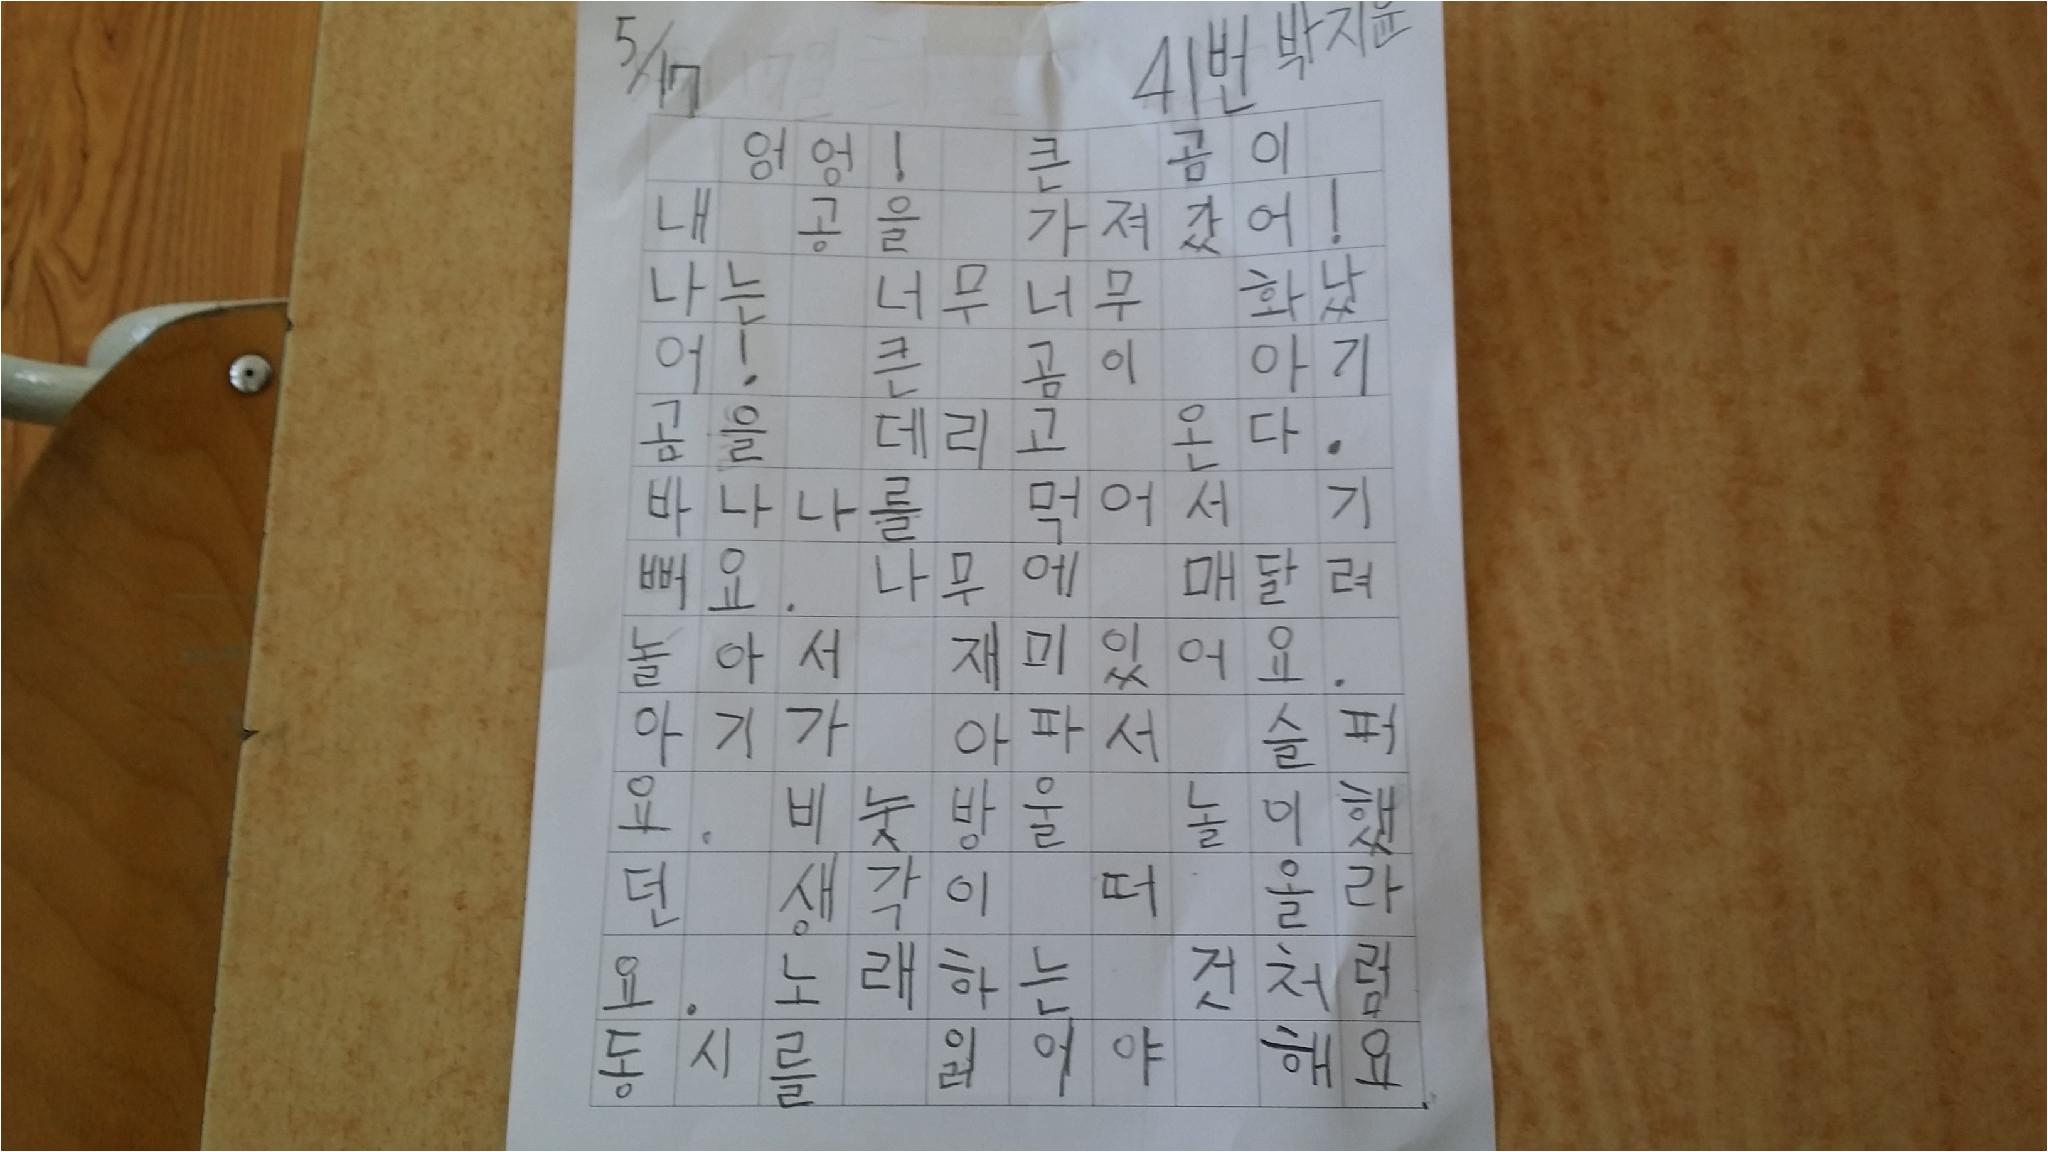 5/17 41번 박지윤
엉엉! 큰 곰이
내 공을 가져갔어!
나는 너무너무 화났
어! 큰 곰이 아기
곰을 데리고 온다.
바나나를 먹어서 기
뻐요. 나무에 매달려
놀아서 재미있어요.
아기가 아파서 슬퍼
요. 비눗방울 놀이했
던 생각이 떠 올라
요. 노래하는 것처럼
동시를 읽어야 해요.